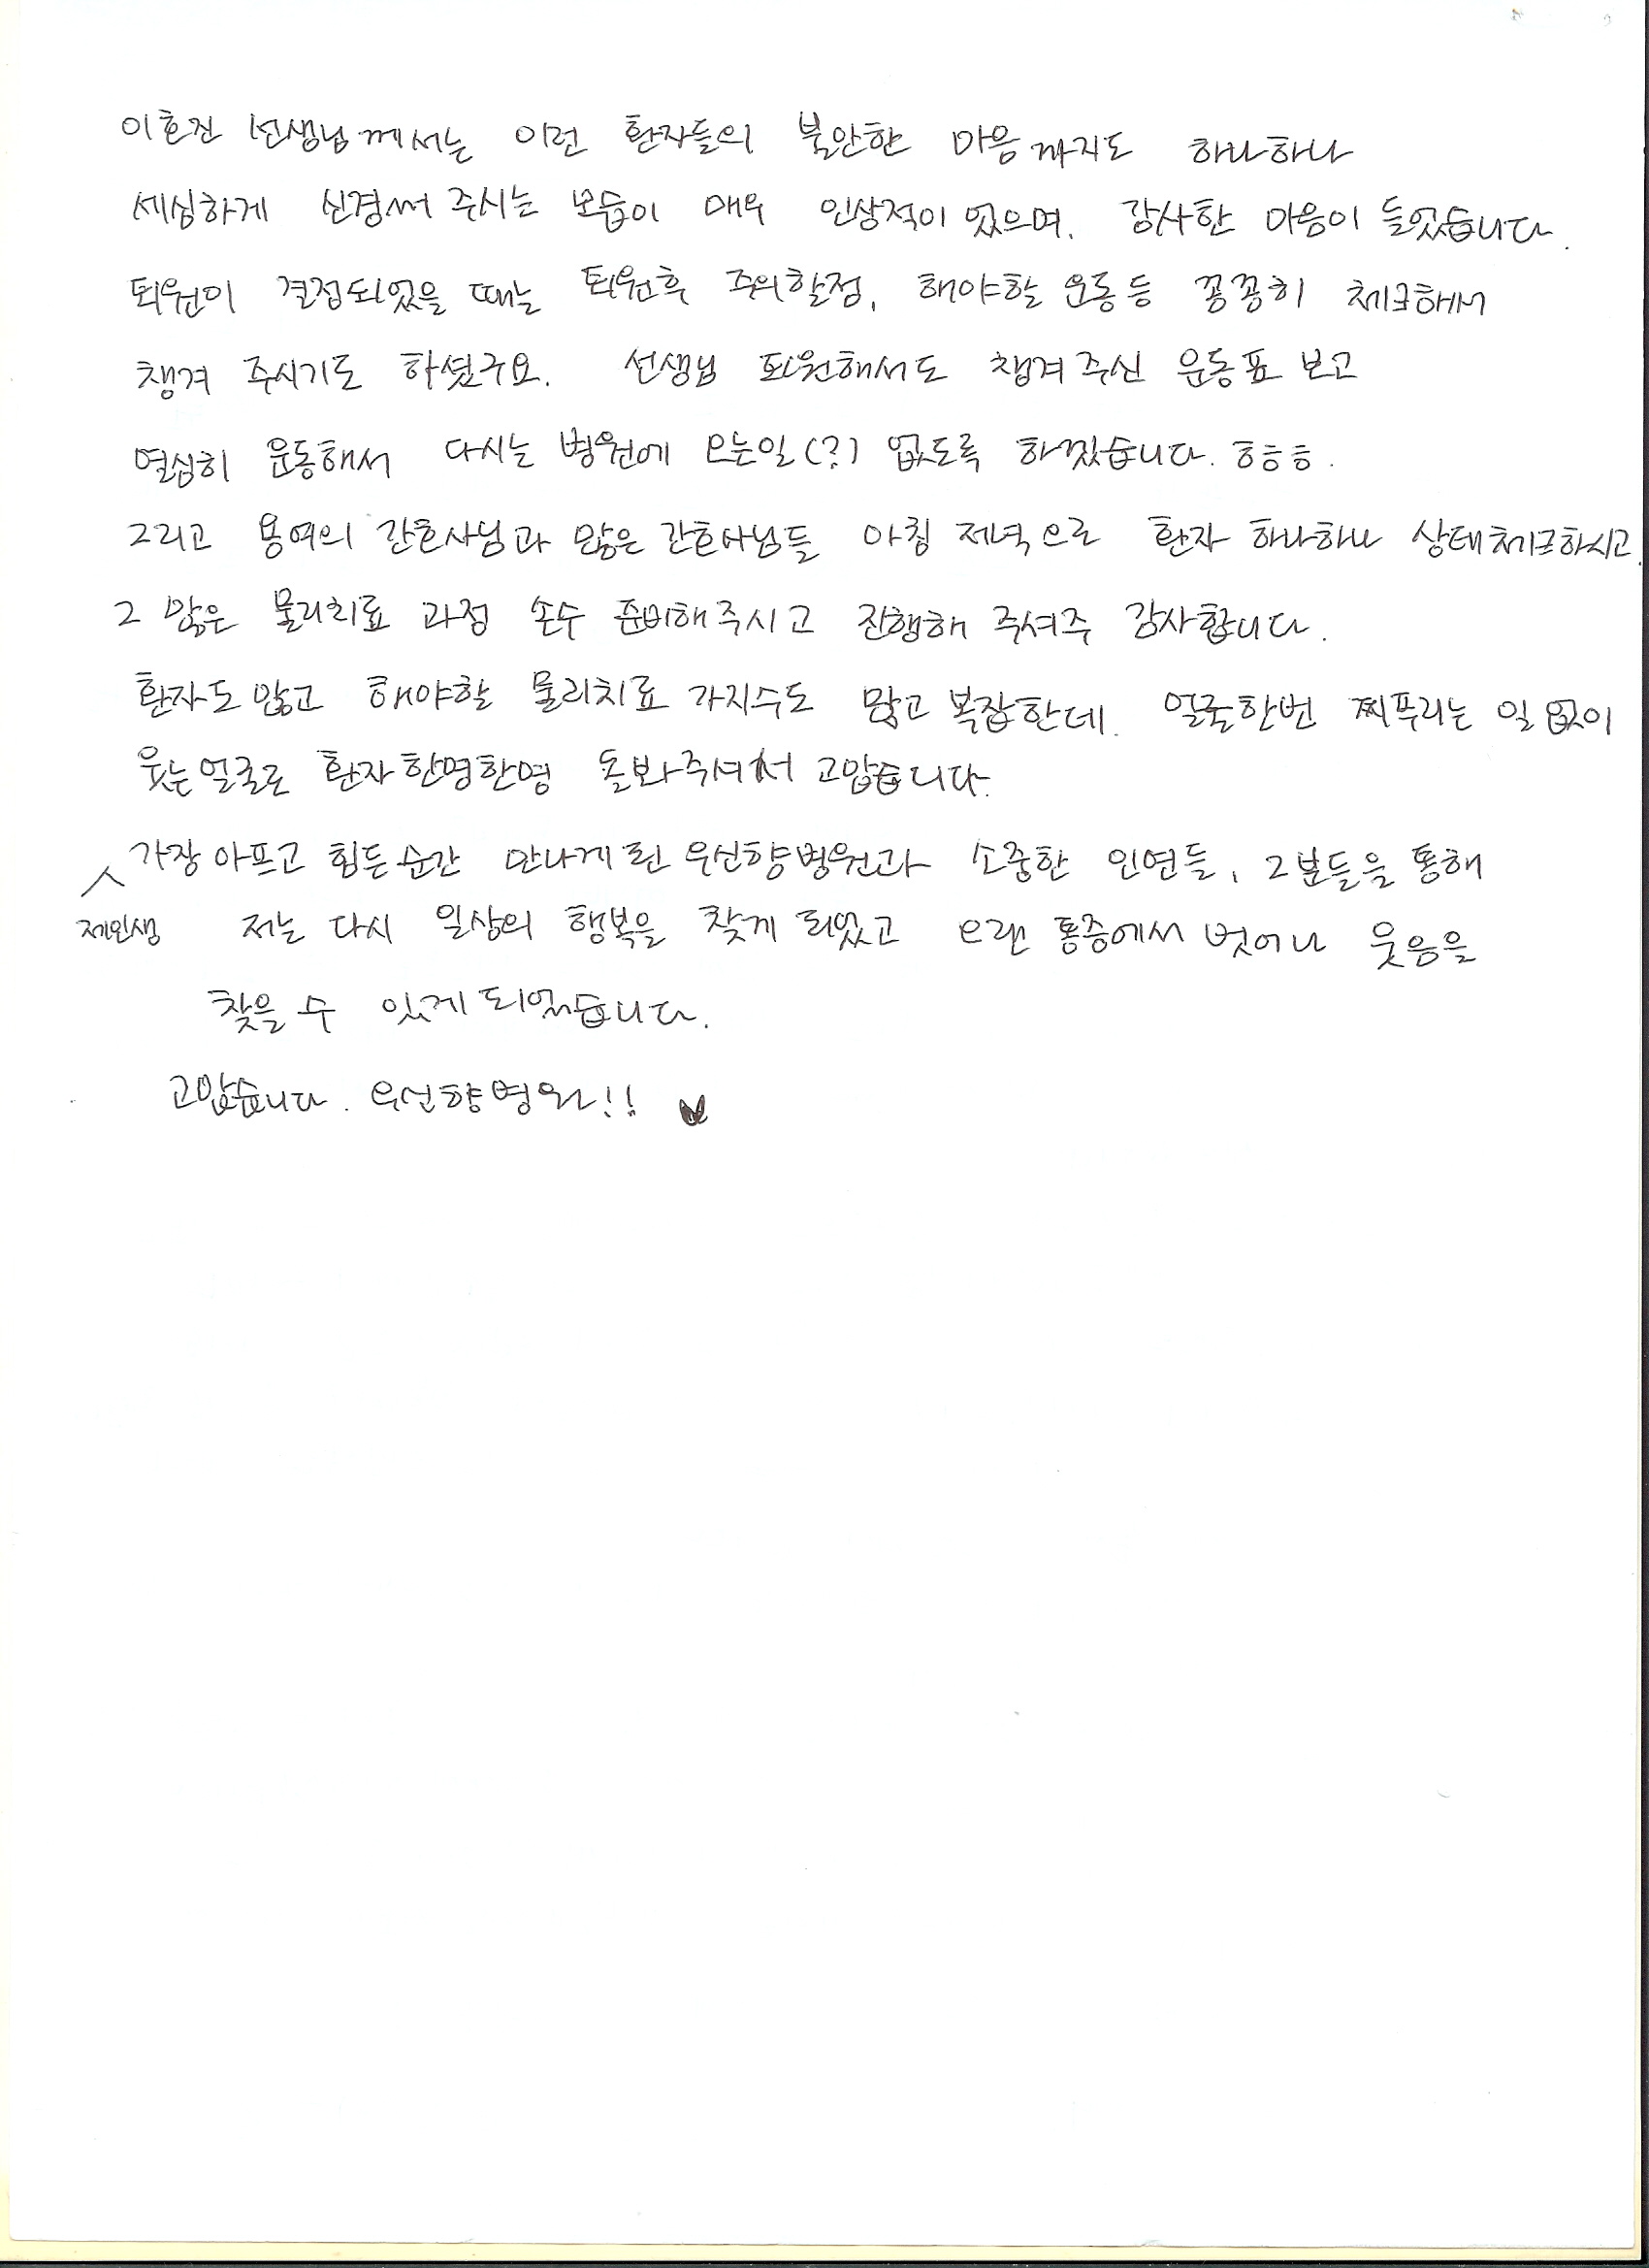 이효진 선생님께서는 이런 환자들의 불안한 마음까지도 하나하나
세심하게 신경써 주시는 모습이 매우 인상적이 었으며. 감사한 마음이 들었습니다.
퇴원이 결정되었을 때는 퇴원후 주의할점, 해야할 운동 등 꼼꼼히 체크해서
챙겨 주시기도 하셨구요. 선생님 퇴원해서도 챙겨주신 운동표 보고
열심히 운동해서 다시는 병원에 오는일(?) 없도록 하겠습니다. ㅎㅎㅎ.
그리고 간호사님과 많은 간호사님들 아침 저녁으로 환자 하나하나 상태체크하시고.
그 많은 물리치료 과정 손수 준비해주시고 진행해 주셔주 감사합니다.
환자도많고 해야할 물리치료 가지수도 많고 복잡한데. 얼굴한번 찌푸리는 일 없이
웃는얼굴로 환자한명한명 돌봐주셔서 고맙습니다.
제인생 가장 아프고 힘든순간 만나게 된 우신향병원과 소중한 인연들, 그분들을 통해
저는 다시 일상의 행복을 찾게 되었고 오랜 통증에서 벗어나 웃음을
찾을 수 있게 되었습니다.
고맙습니다. 우신향병원!!